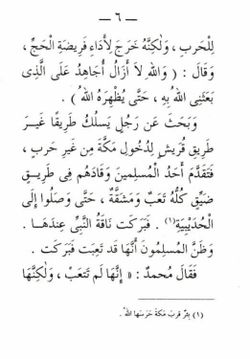 — ٦ —
لِلْحَربِ ، وَلٰكِنَّهُ خَرَجَ لِأَدَاءِ فَرِيضَةِ الْحَجِّ ،
وَقَالَ : ( وَاللهِ لَا أَزَالُ أُجَاهِدُ عَلَى الَّذِى
بَعَثَنِى اللهُ بِهِ ، حَتَّى يُظْهِرَهُ اللهُ ) .
وَبَحَثَ عَن رَجُلٍ يَسلُكُ طَرِيقًا غَيـرَ
طَرِيقِ قُرَيشٍ لِدُخُولِ مَكَّةَ مِن غَيرِ حَربٍ ،
فَتَقَدَّمَ أَحَدُ الْمُسلِمِينَ وَقَادَهُم فِى طَرِيـقٍ
ضَيِّقٍ كُلُّهُ تَعَبٌ وَمَشَقَّةٌ ، حَتَّى وَصَلُوا إِلَى
الْحُدَيْبِيَةِ (١) . فَبَرَكَت نَاقَةُ النَّبِىِّ عِندَهَـا .
وَظَنَّ الْمُسلِمُونَ أَنَّهَا قَد تَعِبَت فَبَرَكَت .
فَقَالَ مُحمدٌ : « إِنَّهَا لَم تَتعَبْ ، وَلٰكِنَّهَا
(١) بِئرٌ قربَ مَكةَ حَرَسَها اللهُ .